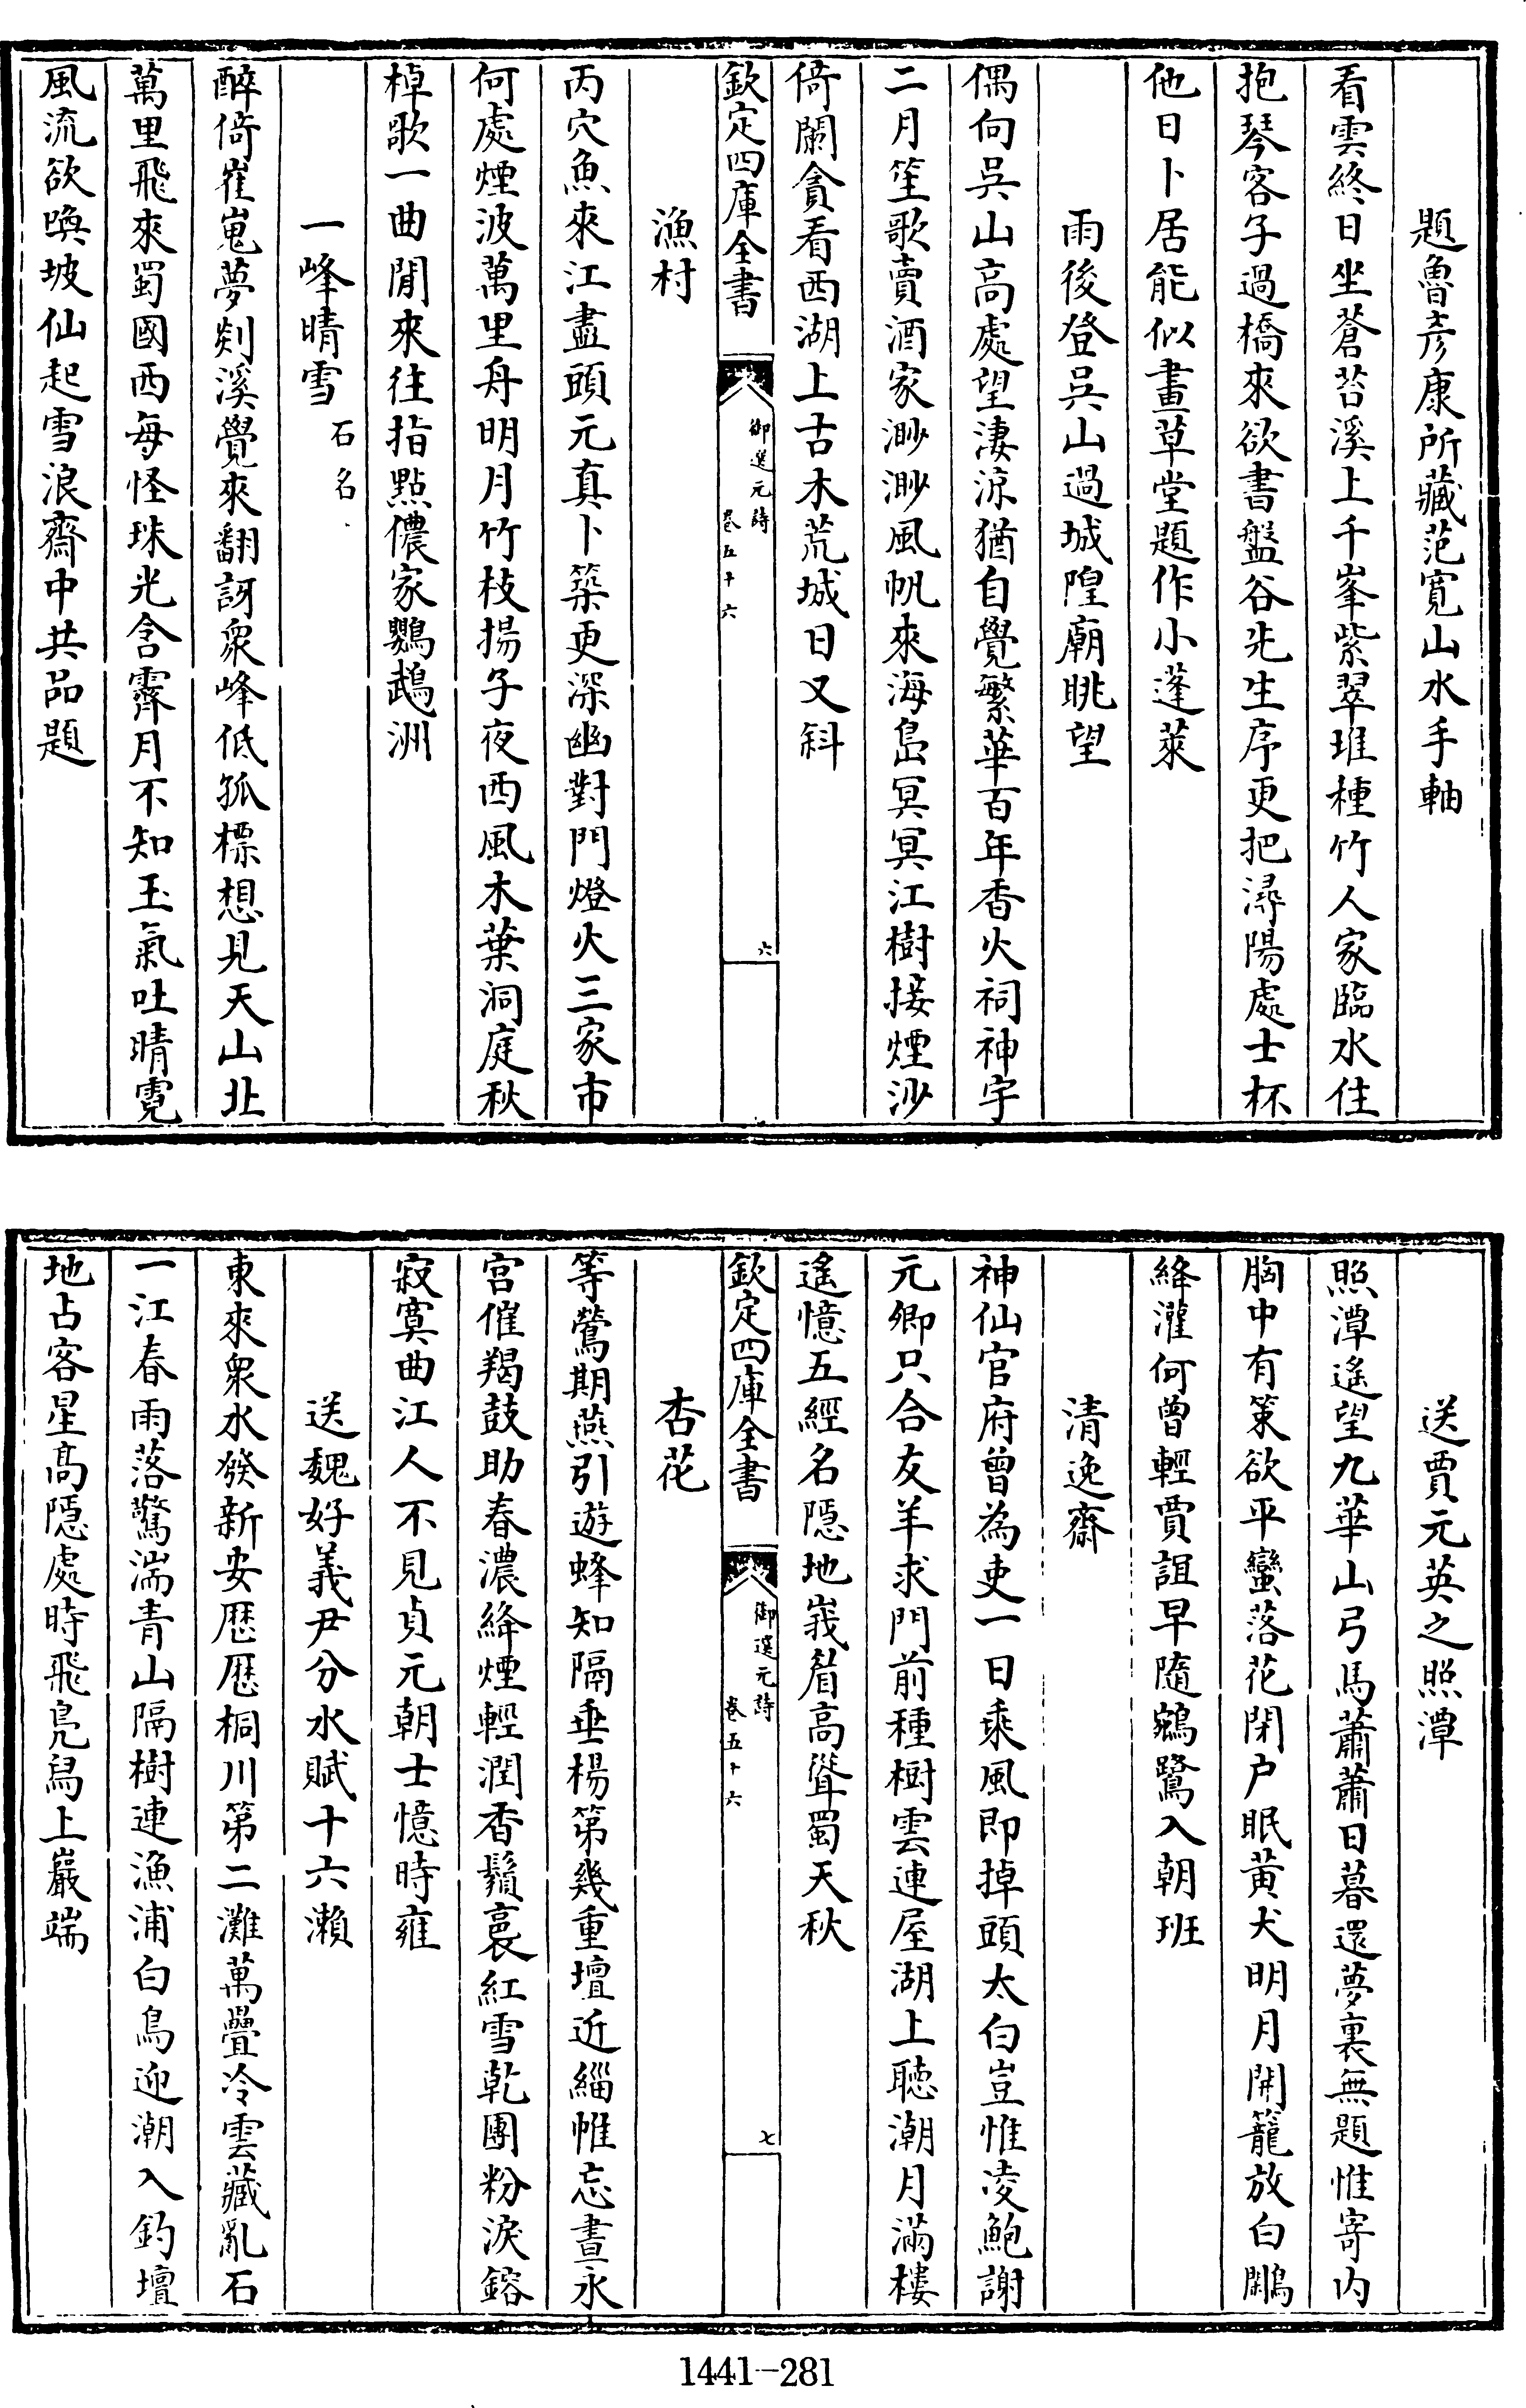 題魯彥康所藏范寛山水手軸
看雲終日坐蒼苔溪上千峯紫翠堆種竹人家臨水住
抱琴客子過橋來欲書盤谷先生序更把潯陽處士杯
他日卜居能似畫草堂題作小蓬萊
雨後登吳山過城隍廟眺望
偶向吳山高處望淒涼猶自覺繁華百年香火祠神宇
二月笙歌賣酒家渺渺風帆來海島冥冥江樹接煙沙
倚闌貪看西湖上古木荒城日又斜
欽定四庫全書
御選元詩
卷五十六
六
漁村
丙穴魚來江盡頭元真卜築更深幽對門燈火三家市
何處煙波萬里舟明月竹枝揚子夜西風木葉洞庭秋
棹歌一曲閒來往指點儂家鸚鵡洲
一峰晴雪石名
醉倚崔嵬夢剡溪覺來翻訝衆峰低孤標想見天山北
萬里飛來蜀國西每怪珠光含霽月不知玉氣吐晴霓
風流欲喚坡仙起雪浪齋中共品題
送賈元英之照潭
照潭遙望九華山弓馬蕭蕭日暮還夢裏無題惟寄内
胸中有策欲平蠻落花閉户眠黃犬明月開籠放白鷴
絳灌何曾輕賈誼早隨鵷鷺入朝班
清逸齋
神仙官府曾為吏一日乘風即掉頭太白豈惟凌鮑謝
元卿只合友羊求門前種樹雲連屋湖上聽潮月滿樓
遙憶五經名隱地峩眉高聳蜀天秋
欽定四庫全書
御選元詩
卷五十六
七
杏花
等鶯期燕引遊蜂知隔垂楊第幾重壇近緇帷忘晝永
宫催羯鼓助春濃絳煙輕潤香鬚裛紅雪乾團粉淚鎔
寂寞曲江人不見貞元朝士憶時雍
送魏好義尹分水賦十六瀨
東來衆水發新安歷歷桐川第二灘萬疊冷雲藏亂石
一江春雨落驚湍青山隔樹連漁浦白鳥迎潮入釣壇
地占客星高隱處時飛鳬舄上巖端
1441-281